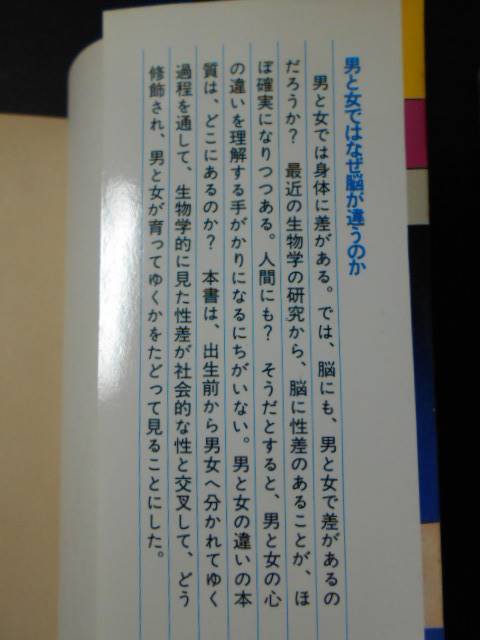 男と女ではなぜ脳が違うのか
男と女では身体に差がある。では、脳にも、男と女で差があるの
だろうか? 最近の生物学の研究から、脳に性差のあることが、ほ
ぼ確実になりつつある。人間にも? そうだとすると、男と女の心
の違いを理解する手がかりになるにちがいない。男と女の違いの本
質は、どこにあるのか? 本書は、出生前から男女へ分かれてゆく
過程を通して、生物学的に見た性差が社会的な性と交叉して、どう
修飾され、男と女が育ってゆくかをたどって見ることにした。